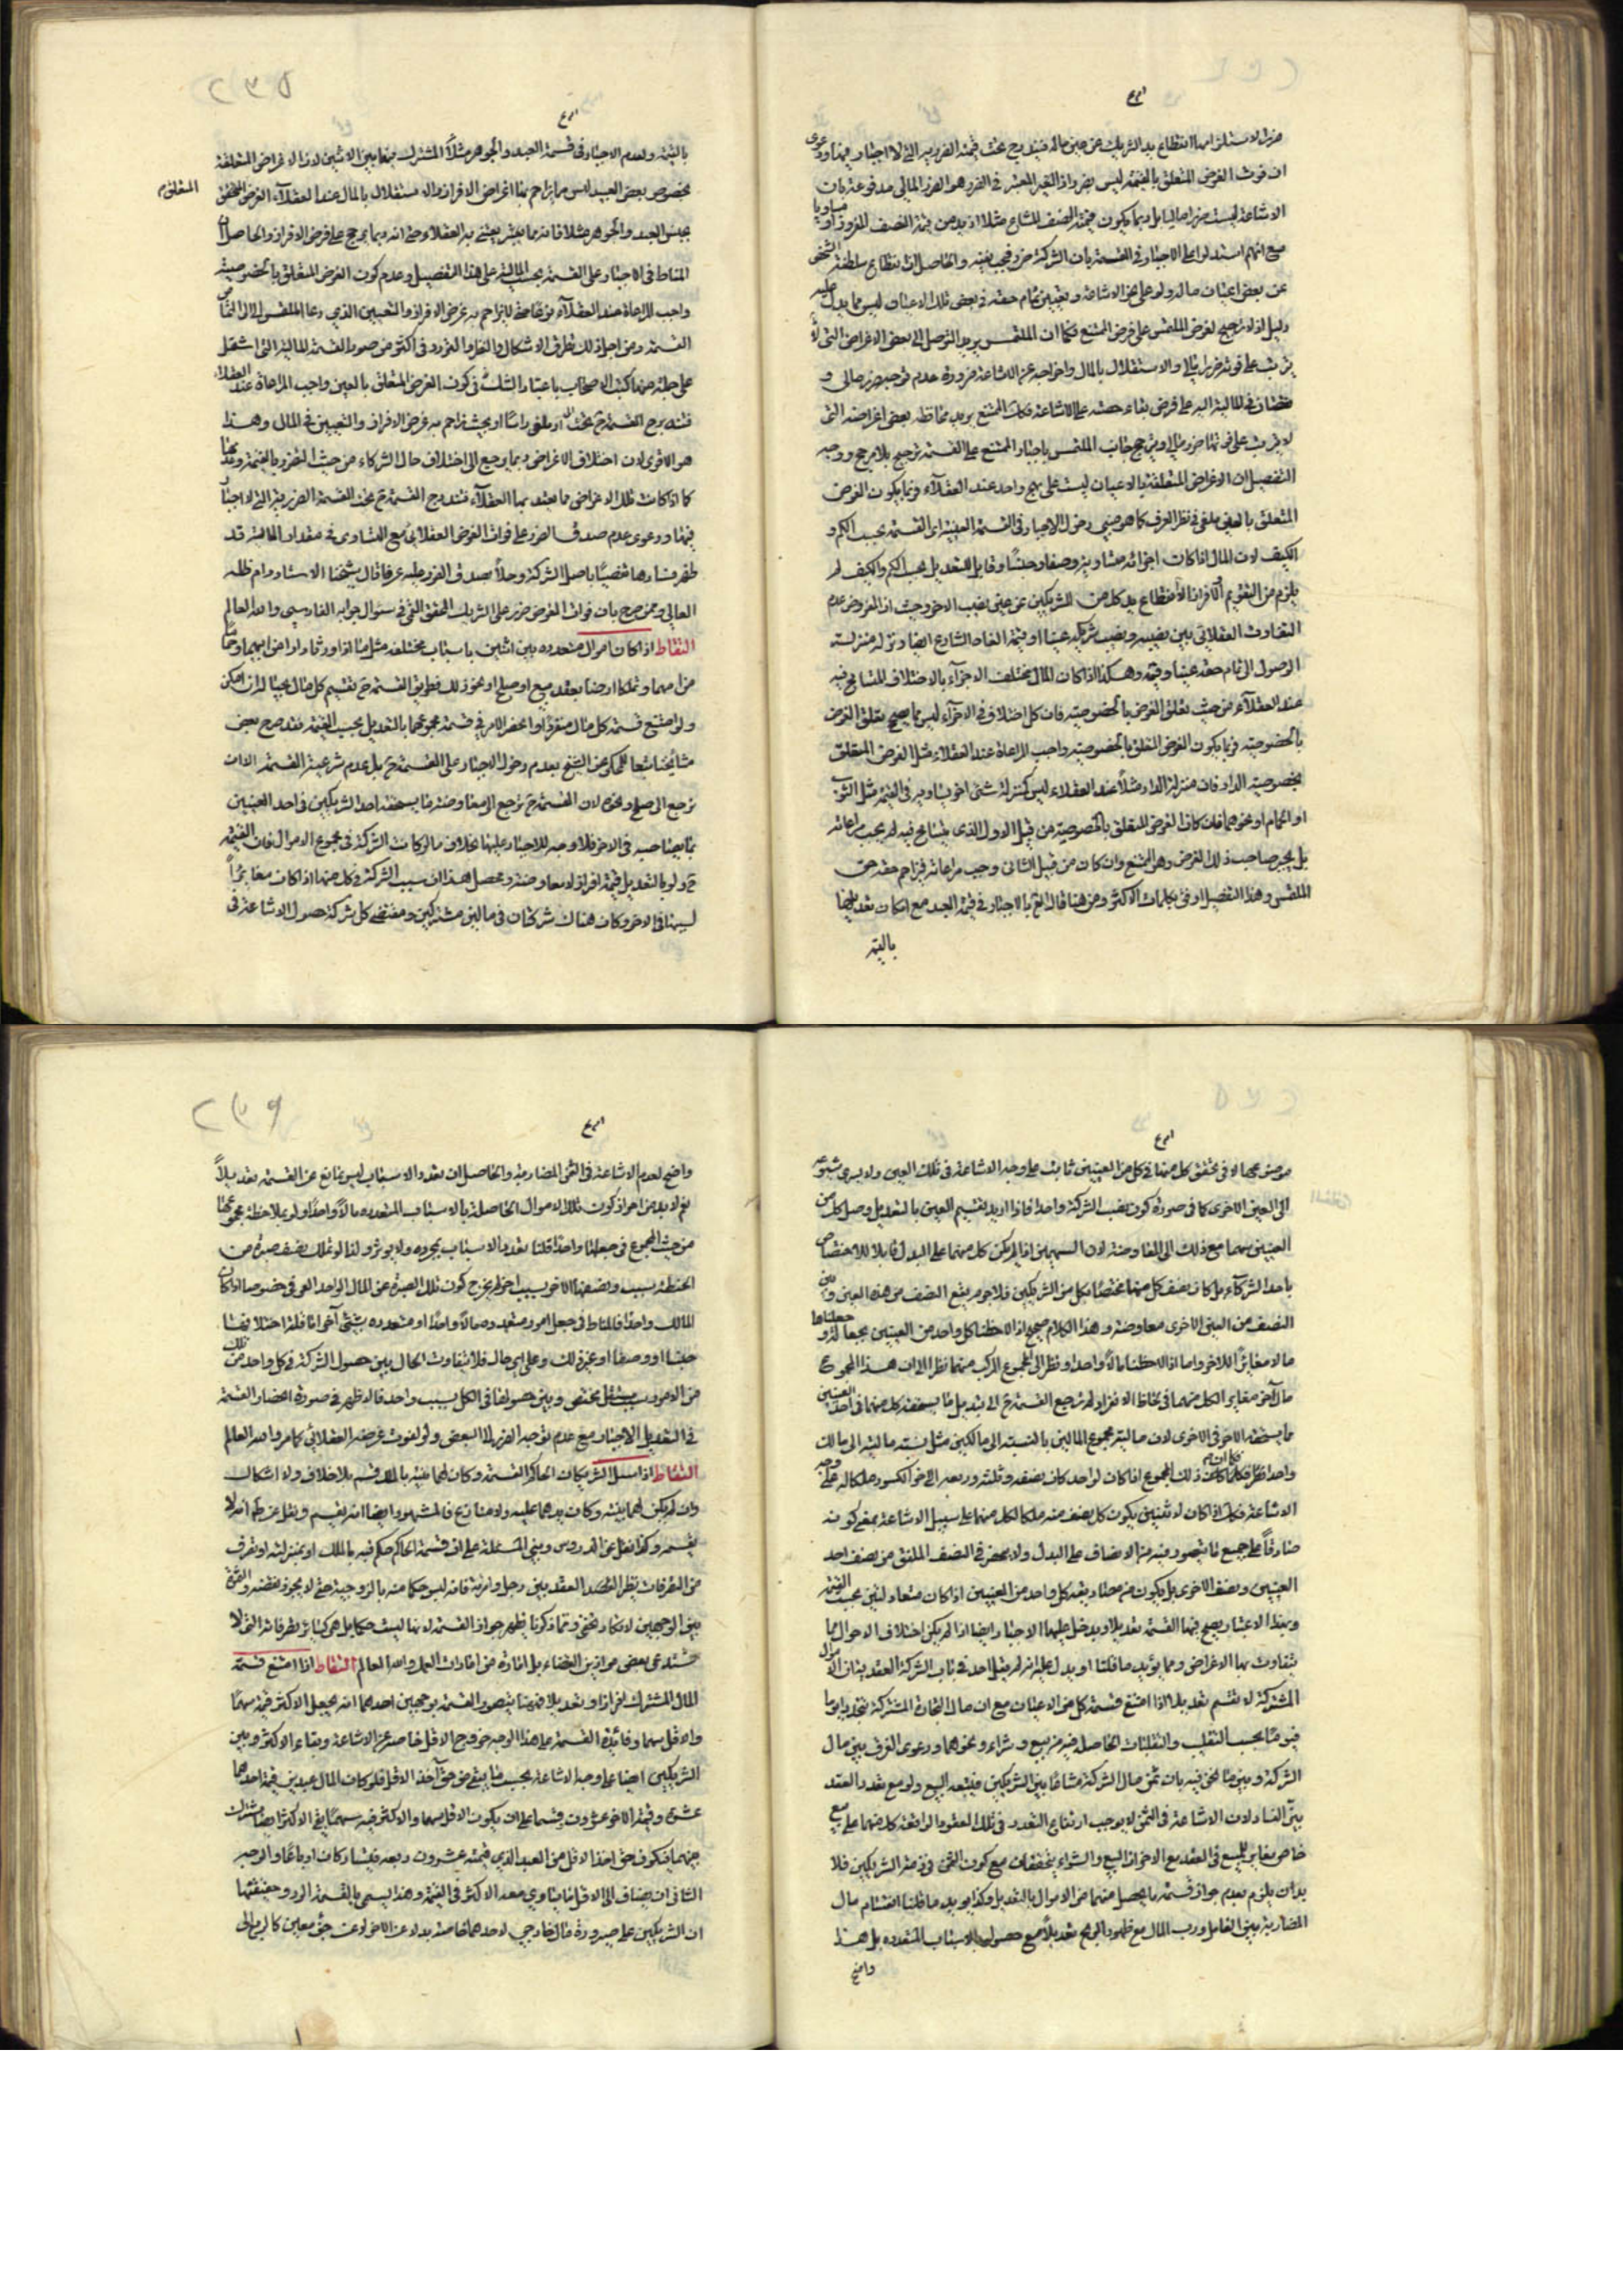 ضررا لاستلزامها انقطاع يد الشريك عن عين ماله فيندرج تحت قسمة الضرر التي لا اجبار فيها ودعوى
ان فوت الغرض المتعلق بالقسمة ليس بضرر اذ الضرر المعتبر في الضرر هو الضرر المالي مدفوعة بان
الاشاعة ليست ضررا ماليا بل ربما يكون قيمة النصف المشاع مثلا ازيد من قيمة النصف المفروز او مساويا
مع انهم استدلوا على الاجبار في القسمة بان الشركة ضرر فيجب نفيه والحاصل ان انقطاع سلطنة الشخص
عن بعض اعيان ماله ولو على نحو الاشاعة وتعيين تمام حقه في بعض تلك الاعيان ليس مما يدل عليه
دليل اذ لا ترجيح لغرض الملتمس على غرض الممتنع فكما ان الملتمس يريد التوصل الى بعض الاغراض التي لا
يترتب على فوته ضرر مالي والاستقلال بالمال واخراجه عن الاشاعة ضرورة عدم توجه ضرر مالي و
نقصان في المالية اليه على فرض بقاء حصته على الاشاعة فكذلك الممتنع يريد محافظة بعض اغراضه التي
لا يترتب على فواتها ضرر مالي وترجيح جانب الملتمس باجبار الممتنع على القسمة ترجيح بلا مرجح ووجه
التفصيل ان الاغراض المتعلقة بالاعيان ليست على نهج واحد عند العقلاء وربما يكون الغرض
المتعلق بالعين ملغى في نظر العرف كما هو مبنى دخول الاجبار في القسمة العينية اي القسمة بحسب الكم و
الكيف لان المال اذا كانت اجزائه متساوية وصفا وجنسا وقابل للتعديل بحسب الكم والكيف لم
يلزم من التقويم والافراز الا انقطاع يد كل من الشريكين عن عين نصيب الاخر وحيث ان المفروض عدم
التفاوت العقلائي بين نصيبه ونصيب شريكه عينا او قيمة الغاه الشارع ايضا ونزله منزلة
الوصول الى تمام حقه عينا وقيمة وهكذا اذا كان المال مختلف الاجزاء بالاختلاف المتسامح فيه
عند العقلاء من حيث تعلق الغرض بالخصوصية فان كل اختلاف في الاجزاء ليس مما يصح تعلق الغرض
بالخصوصية وربما يكون الغرض المتعلق بالخصوصية واجب المراعاة عند العقلاء مثل الغرض المتعلق
بخصوصية الدار فان منزلة الدار مثلا عند العقلاء ليس كمنزلة شيء اخر يساويه في القيمة مثل الثوب
او الحمام او نحوهما فان كان الغرض المتعلق بالخصوصية من قبيل الاول الذي يتسامح فيه لم يجب مراعاته
بل يجبر صاحب ذلك الغرض وهو الممتنع وان كان من قبيل الثاني وجب مراعاته فيزاحم حقه حق
الملتمس وهذا التفصيل اوفق بكلمات الاكثر ومن هنا قالوا بالاجبار في قسمة العبد مع امكان تعديلها
بالقيمة
٢٣٥
بالقيمة ولعدم الاجبار في قسمة العبد والجوهر مثلا المشترك فيهما بين الاثنين لان الاغراض المتعلقة
بخصوص بعض العبيد ليس مما يزاحم بها اغراض الافراز والاستقلال بالمال عند العقلاء الغرض المختص
المتعلق
بجنس العبد والجوهر مثلا فانه مما يعتبر يعتنى به العقلاء حتى انه ربما يرجح على غرض الافراز والحاصل ان
المناط في الاجبار على القسمة بحسب المالية على هذا التفصيل وعدم كون الغرض المتعلق بالخصوصية
واجب المراعاة عند العقلاء مزاحمة ليزاحم به غرض الافراز والتعيين الذي دعا الملتمس الى التماس
القسمة ومن اجل ذلك تطرق الاشكال والنظر والتردد في اكثر من صور القسمة المالية التي اشتمل
على جملة منها كتب الاصحاب باعتبار الشك في كون الغرض المتعلق بالعين واجب المراعاة عند العقلاء
فتندرج القسمة تحت او ملغى راسا او بحيث تزاحم به غرض الافراز والتعيين في المال وهذا
هو الاقوى لان اختلاف الاغراض ربما يرجع الى اختلاف حال الشركاء من حيث التضرر بالقيمة وعدمها
كما اذا كانت تلك الاغراض مما يعتد بها العقلاء فتندرج القسمة ح تحت القسمة الضررية التي لا اجبار
فيها ودعوى عدم صدق الضرر على فوات الغرض العقلائي مع التساوي في مقدار المالية قد
ظهر فسادها نقضا باصل الشركة وحلا بصدق الضرر عليه عرفا قال شيخنا الاستاد دام ظله
العالي وممن صرح بان فوات الغرض ضرر على الشريك المحقق القمي في سؤال جوابه الفارسي والله العالم
التقاط اذا كان اموال متعددة بين اثنين باسباب مختلفة مثل ما اذا ورثا دارا من ابيهما وحماما
من امهما وتملكا ارضا بعقد بيع او صلح او نحو ذلك فطريق القسمة ح تقسيم كل مال بحياله ان امكن
ولو امتنع قسمة كل مال منفردا وانحصر الامر في قسمة مجموعها بالتعديل بحسب القيمة فقد صرح بعض
مشايخنا تبعا للمحكي عن الشيخ بعدم دخول الاجبار على القسمة ح بل عدم شرعية القسمة الا ان
ترجع الى صلح ونحوه لان القسمة ح ترجع الى معاوضة ما يستحقه احد الشريكين في احد العينين
بما يستحقه صاحبه في الاخر فلا وجه للاجبار عليها بخلاف ما لو كانت الشركة في مجموع الاموال فان القسمة
ح ولو بالتعديل قسمة افراز لا معاوضة ومحصل هذا ان سبب الشركة في كل منها اذا كان مغايرا
لسببها في الاخر وكان هناك شركتان في مالين مشتركين ومقتضى كل شركة حصول الاشاعة في
مورد سببها لا في تحقق كل منها في كل من العينين ثابت على وجه الاشاعة في تلك العين ولا يسري شيوعه
الى العين الاخرى كما في صورة كون سبب الشركة واحدا فاذا اريد تقسيم العين بالتعديل وجعل كل من
العينين سهما مع ذلك الى المعاوضة لان السهمين اذا لم يكن كل منهما على البدل قابلا للاختصاص
باحد الشركاء بل كان نصف كل منهما مختصا بكل من الشريكين فلا جرم يقع النصف من هذه العين وبين
النصف من العين الاخرى معاوضة وهذا الكلام صحيح اذا لاحظنا كل واحد من العينين بحياله وجعلناها
مالا مغايرا للاخر واما اذا لاحظناها مالا واحدا ونظر الى المجموع المركب منهما نظرا الى ان هذا المجموع
مال اخر مغاير لكل منهما في لحاظ الانفراد لم ترجع القسمة ح الى تبديل ما يستحقه كل منهما في احد العينين
بما يستحقه الاخر في الاخرى لان مالية مجموع المالين بالنسبة الى مالكين مثل نسبة مالية الى مالك
واحد فكما كان ذلك المجموع اذا كان لواحد كان نصفه وثلثه وربعه الى اخر الكسور ملكا له على وجه
الاشاعة فكذلك اذا كان لاثنين يكون كل نصف منه ملكا لكل منهما على سبيل الاشاعة بمعنى كونه
صادقا على جميع ما يتصور فيه من الانصاف على البدل ولا ينحصر في النصف الملفق من نصف احد
العينين ونصف الاخرى بل يكون من مصاديقه كل واحد من العينين اذا كان متعادلتين بحسب القيمة
وبهذا الاعتبار يصح فيهما القسمة تعديلا ويدخل عليهما الاجبار ايضا اذا لم يكن اختلاف الاموال مما
يتفاوت بها الاغراض ومما يؤيد ما قلنا او يدل عليه انه لم يقل احد في باب الشركة العقدية بان الاموال
المشتركة لا تقسم تعديلا اذا امتنع قسمة كل من الاعيان مع ان مال التجارة المشتركة يتجدد يوما
فيوما بحسب التقلب والتقلبات الحاصلة فيه من بيع وشراء ونحوهما ودعوى الفرق بين مال
الشركة وبين ما نحن فيه بان ثمن مال الشركة مشاعا بين الشريكين فيتبعه المبيع ولو مع تعدد العقد
بين الفساد لان الاشاعة في الثمن لا يوجب ارتفاع التعدد في تلك العقود الواقعة كل منها على مبيع
خاص مغاير للمبيع في العقد مع الاخر اذ البيع والشراء يتحققان مع كون الثمن في ذمة الشريكين فلا
بد ان يلزم بعدم جواز قسمة ما يحصل منهما من الاموال بالتعديل وكذا يؤيد ما قلنا اقتسام مال
المضاربة بين العامل ورب المال مع ظهور الربح تعديلا مع حصوله بالاسباب المتعددة بل هذا
واضح
٢٣٦
واضح لعدم الاشاعة في الثمن المضاربة والحاصل ان تعدد الاسباب ليس بمانع عن القسمة تعديلا
نعم لا بد من احراز كون تلك الاموال الحاصلة بالاسباب المتعددة مالا واحدا ولو بملاحظة مجموعها
من حيث المجموع في جعلها واحدا قلنا تعدد الاسباب بمجرده ولا يؤثر ولذا لو تملك نصف صبرة من
الحنطة بسبب ونصفها الاخر بسبب اخر لم يخرج كون تلك الصبرة عن المال الواحد العرفي خصوصا اذا كان
المالك واحدا فالمناط في جعل امور متعددة مالا واحدا او متعددة بشيء اخر مثل اختلافها
جنسا او وصفا او غير ذلك وعلى اي حال فلا يتفاوت الحال بين حصول الشركة في كل واحد من تلك
من الامور بسبب مستقل مختص وبين حصولها في الكل بسبب واحد فالاظهر في صورة انحصار القسمة
في التعديل الاجبار مع عدم توجه الضرر الى البعض ولو لفوت غرضه العقلائي كما مر والله العالم
التقاط اذا سئل الشريكان الحاكم القسمة وكان لهما بينة بالملك قسم بلا خلاف ولا اشكال
وان لم يكن لهما بينة وكان يدهما عليه ولا منازع فالمشهور ايضا انه يقسم ونقل عن ط انه لا
يقسم وكذا نقل عن الدروس ومبنى المسئلة على ان قسمة الحاكم حكم فيه بالملك او بمنزلته او تصرف
من التصرفات نظير القصد العقد بين رجل وامرئة فانه ليس حكما منه بالزوجية حتى لا يجوز نقضه والفرق
بين الوجهين لا يكاد يخفى ومما ذكرنا يظهر جواز القسمة لانها ليست حكما بل هي كسائر تصرفاته التي لا
تستدعي بعض موازين القضاء بل امارة من امارات العمل والله العالم التقاط اذا امتنع قسمة
المال المشترك افرازا وتعديلا فربما يتصور القسمة بوجهين احدهما انه يجعل الاكثر قيمة سهما
والاقل سهما وفائدة القسمة على هذا الوجه خروج الاقل خاصة عن الاشاعة وبقاء الاكثر بين
الشريكين ايضا على وجه الاشاعة بحسب ما يبقى من حق اخذ الاقل فلو كان المال عبدين قيمة احدهما
عشرة وقيمة الاخر عشرون وقسما على ان يكون الاقل سهما والاكثر فيه سهما يبقى الاكثر ايضا مشترك
بينهما فيكون حق اخذ الاقل من العبد الذي قيمته عشرون ربعه فيتشاركان ارباعا والوجه
الثاني ان يضاف الى الاقل ما يساوي معه الاكثر في القيمة وهذا يسمى بالقسمة الرد وحقيقتها
ان الشريكين على صيرورة مال خارجي لاحدهما خاصة بدلا عن الاخر لا عن جزء معين كما لو مر الى